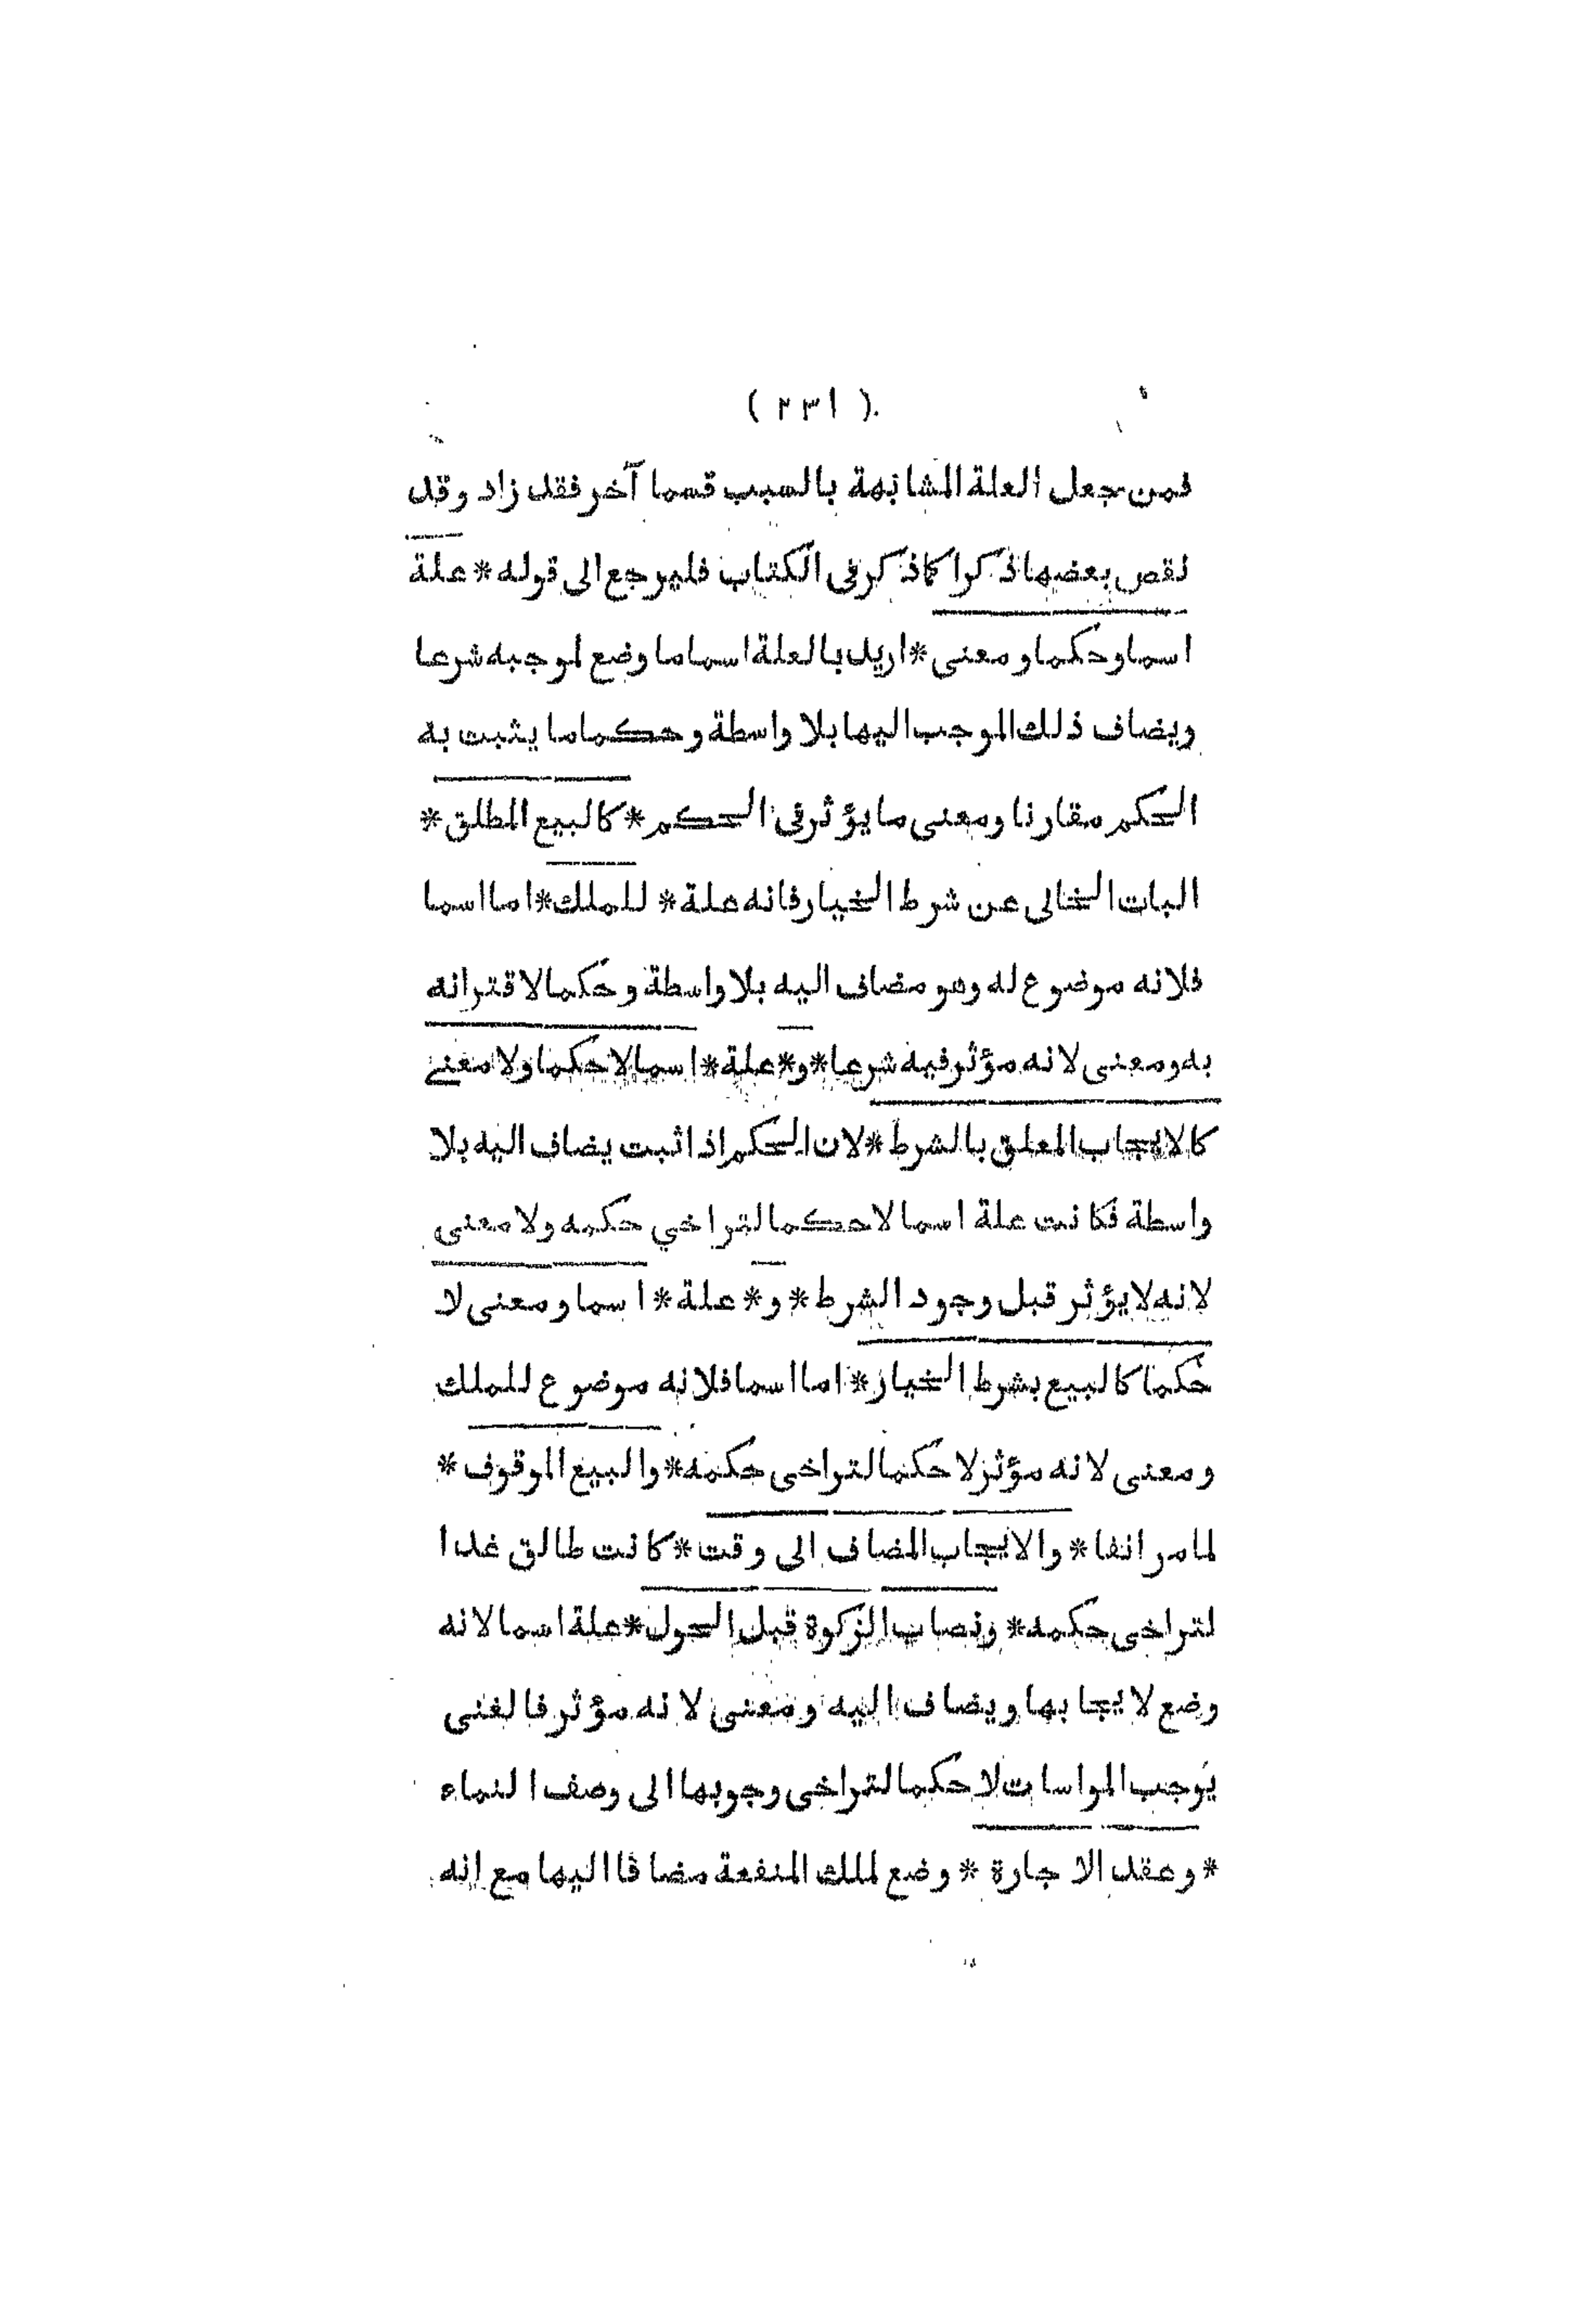 ( ٢٣١ )
فمن جعل العلة المشابهة بالسبب قسما آخر فقد زاد وقد
نقص بعضها ذكرا كما ذكر فى الكتاب فليرجع الى قوله * علة
اسما وحكما ومعنى * اريد بالعلة اسما ما وضع لموجبه شرعا
ويضاف ذلك الموجب اليها بلا واسطة وحكما ما يثبت به
الحكم مقارنا ومعنى ما يؤثر فى الحكم * كالبيع المطلق *
البات الخالى عن شرط الخيار فانه علة * للملك * اما اسما
فلانه موضوع له وهو مضاف اليه بلا واسطة وحكما لاقترانه
به ومعنى لانه مؤثر فيه شرعا * و * علة * اسما لا حكما ولا معنى
كالايجاب المعلق بالشرط * لان الحكم اذا ثبت يضاف اليه بلا
واسطة فكانت علة اسما لا حكما لتراخي حكمه ولا معنى
لانه لا يؤثر قبل وجود الشرط * و * علة * اسما ومعنى لا
حكما كالبيع بشرط الخيار * اما اسما فلانه موضوع للملك
ومعنى لانه مؤثر لا حكما لتراخى حكمه * والبيع الموقوف *
لما مر انفا * والايجاب المضاف الى وقت * كانت طالق غدا
لتراخى حكمه * ونصاب الزكوة قبل الحول * علة اسما لانه
وضع لايجابها ويضاف اليه ومعنى لانه مؤثر فالغنى
يوجب المواسات لا حكما لتراخى وجوبها الى وصف النماء
* وعقد الاجارة * وضع لملك المنفعة مضافا اليها مع انه